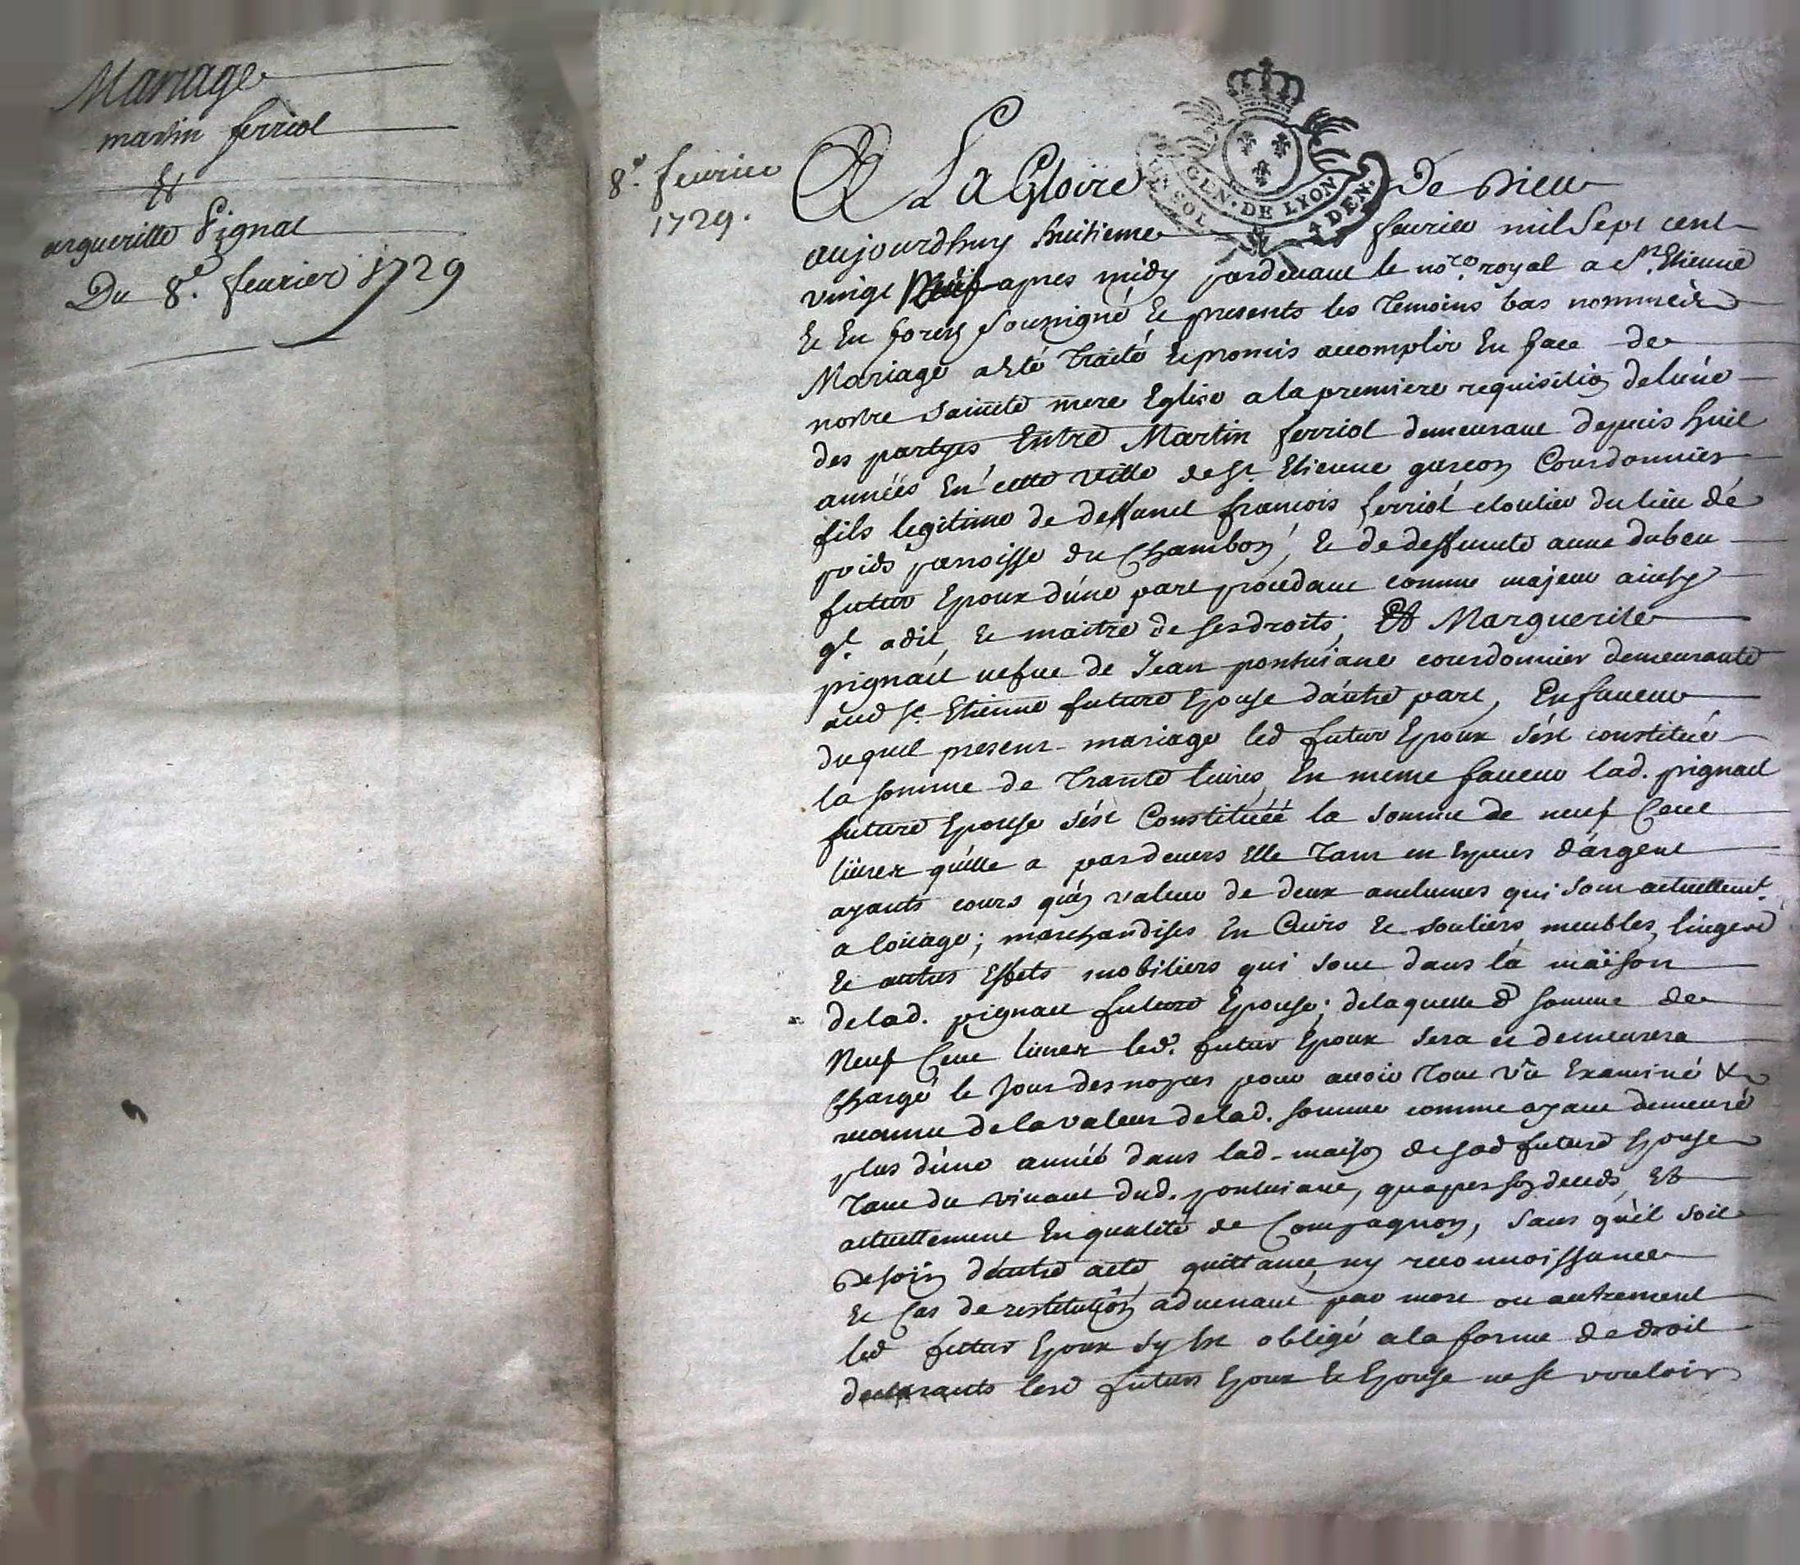 Mariage
martin ferriol
Et
argueritte Pignat
Du 8.e feurier 1729
8.e feurier
1729.
A La Gloire de Dieu
UN SOL GEN. DE LYON 4 DEN.
aujourdhuy huitieme feurier mil sept cent
vingt Neuf apres midy pardeuant le no.re royal a St. Etienne
Et En forez soussigné Et presents les temoins bas nommés
Mariage a Eté traité Et promis accomplir En face de
nostre sainte mere Eglise a la premiere requisition de lúne
des partyes Entre Martin ferriol demeurant depuis huit
années En cette ville de St. Etienne garçon Courdonnier
fils legitime de deffunct françois ferriol cloutier du lieu de
poids parroisse du Chambon, Et de deffuncte anne dubeu
futur Epoux dúne part procedant comme majeur ainsy
qt. a dit, Et maitre de ses droits; Et Marguerite
pignact uefue de Jean pontuiane courdonnier demeurante
aud St. Etienne future Epouse dáutre part, En faueur
duquel present mariage led futur Epoux sést constitué
la somme de trante liures, En meme faueur lad. pignact
future Epouse sést Constituéé la somme de neuf Cent
liures quélle a pardeuers Elle tant en Especes dárgent
ayants cours qúen valeur de deux anclumes qui sont actuellemt.
a loüage; marchandises En Cuirs Et souliers meubles, lingerie
Et autres Effets mobiliers qui sont dans la maison
de lad. pignact future Epouse; de laquelle d. somme de
Neuf Cent liures led. futur Epoux sera et demeurera
Chargé le Jour des nopces pour auoir tout vû Examiné &
reconnu de la valeur de lad. somme comme ayant demeuré
plus dúne annéé dans lad. maison de sad future Epouse
tant du viuant dud. pontuiane, quapres son deceds, Et
actuellement En qualité de Compagnon, sans qúil soit
besoin dáutre acte, quittance, ny reconnoissance
Et Cas de restitution aduenant par mort ou autrement
led futur Epoux sy Est obligé a la forme de droit
declarants lesd futurs Epoux Et Epouse ne se vouloir